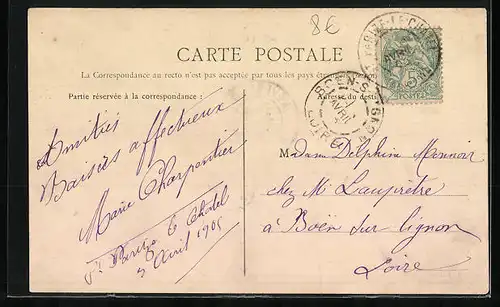 8€
CARTE POSTALE
La Correspondance au recto n'est pas acceptée par tous les pays étrangers
Partie réservée à la correspondance :
Adresse du desti
Amitiés
Baisers affectueux
Marie Charpentier
St Parize le Chatel
3 Avril 1905
BOEN-S-LIGNON
AVRIL
LOIRE
5
M
adam Delphine Monnoir
chez Mr Lauprêtre
à Boën sur Lignon
Loire